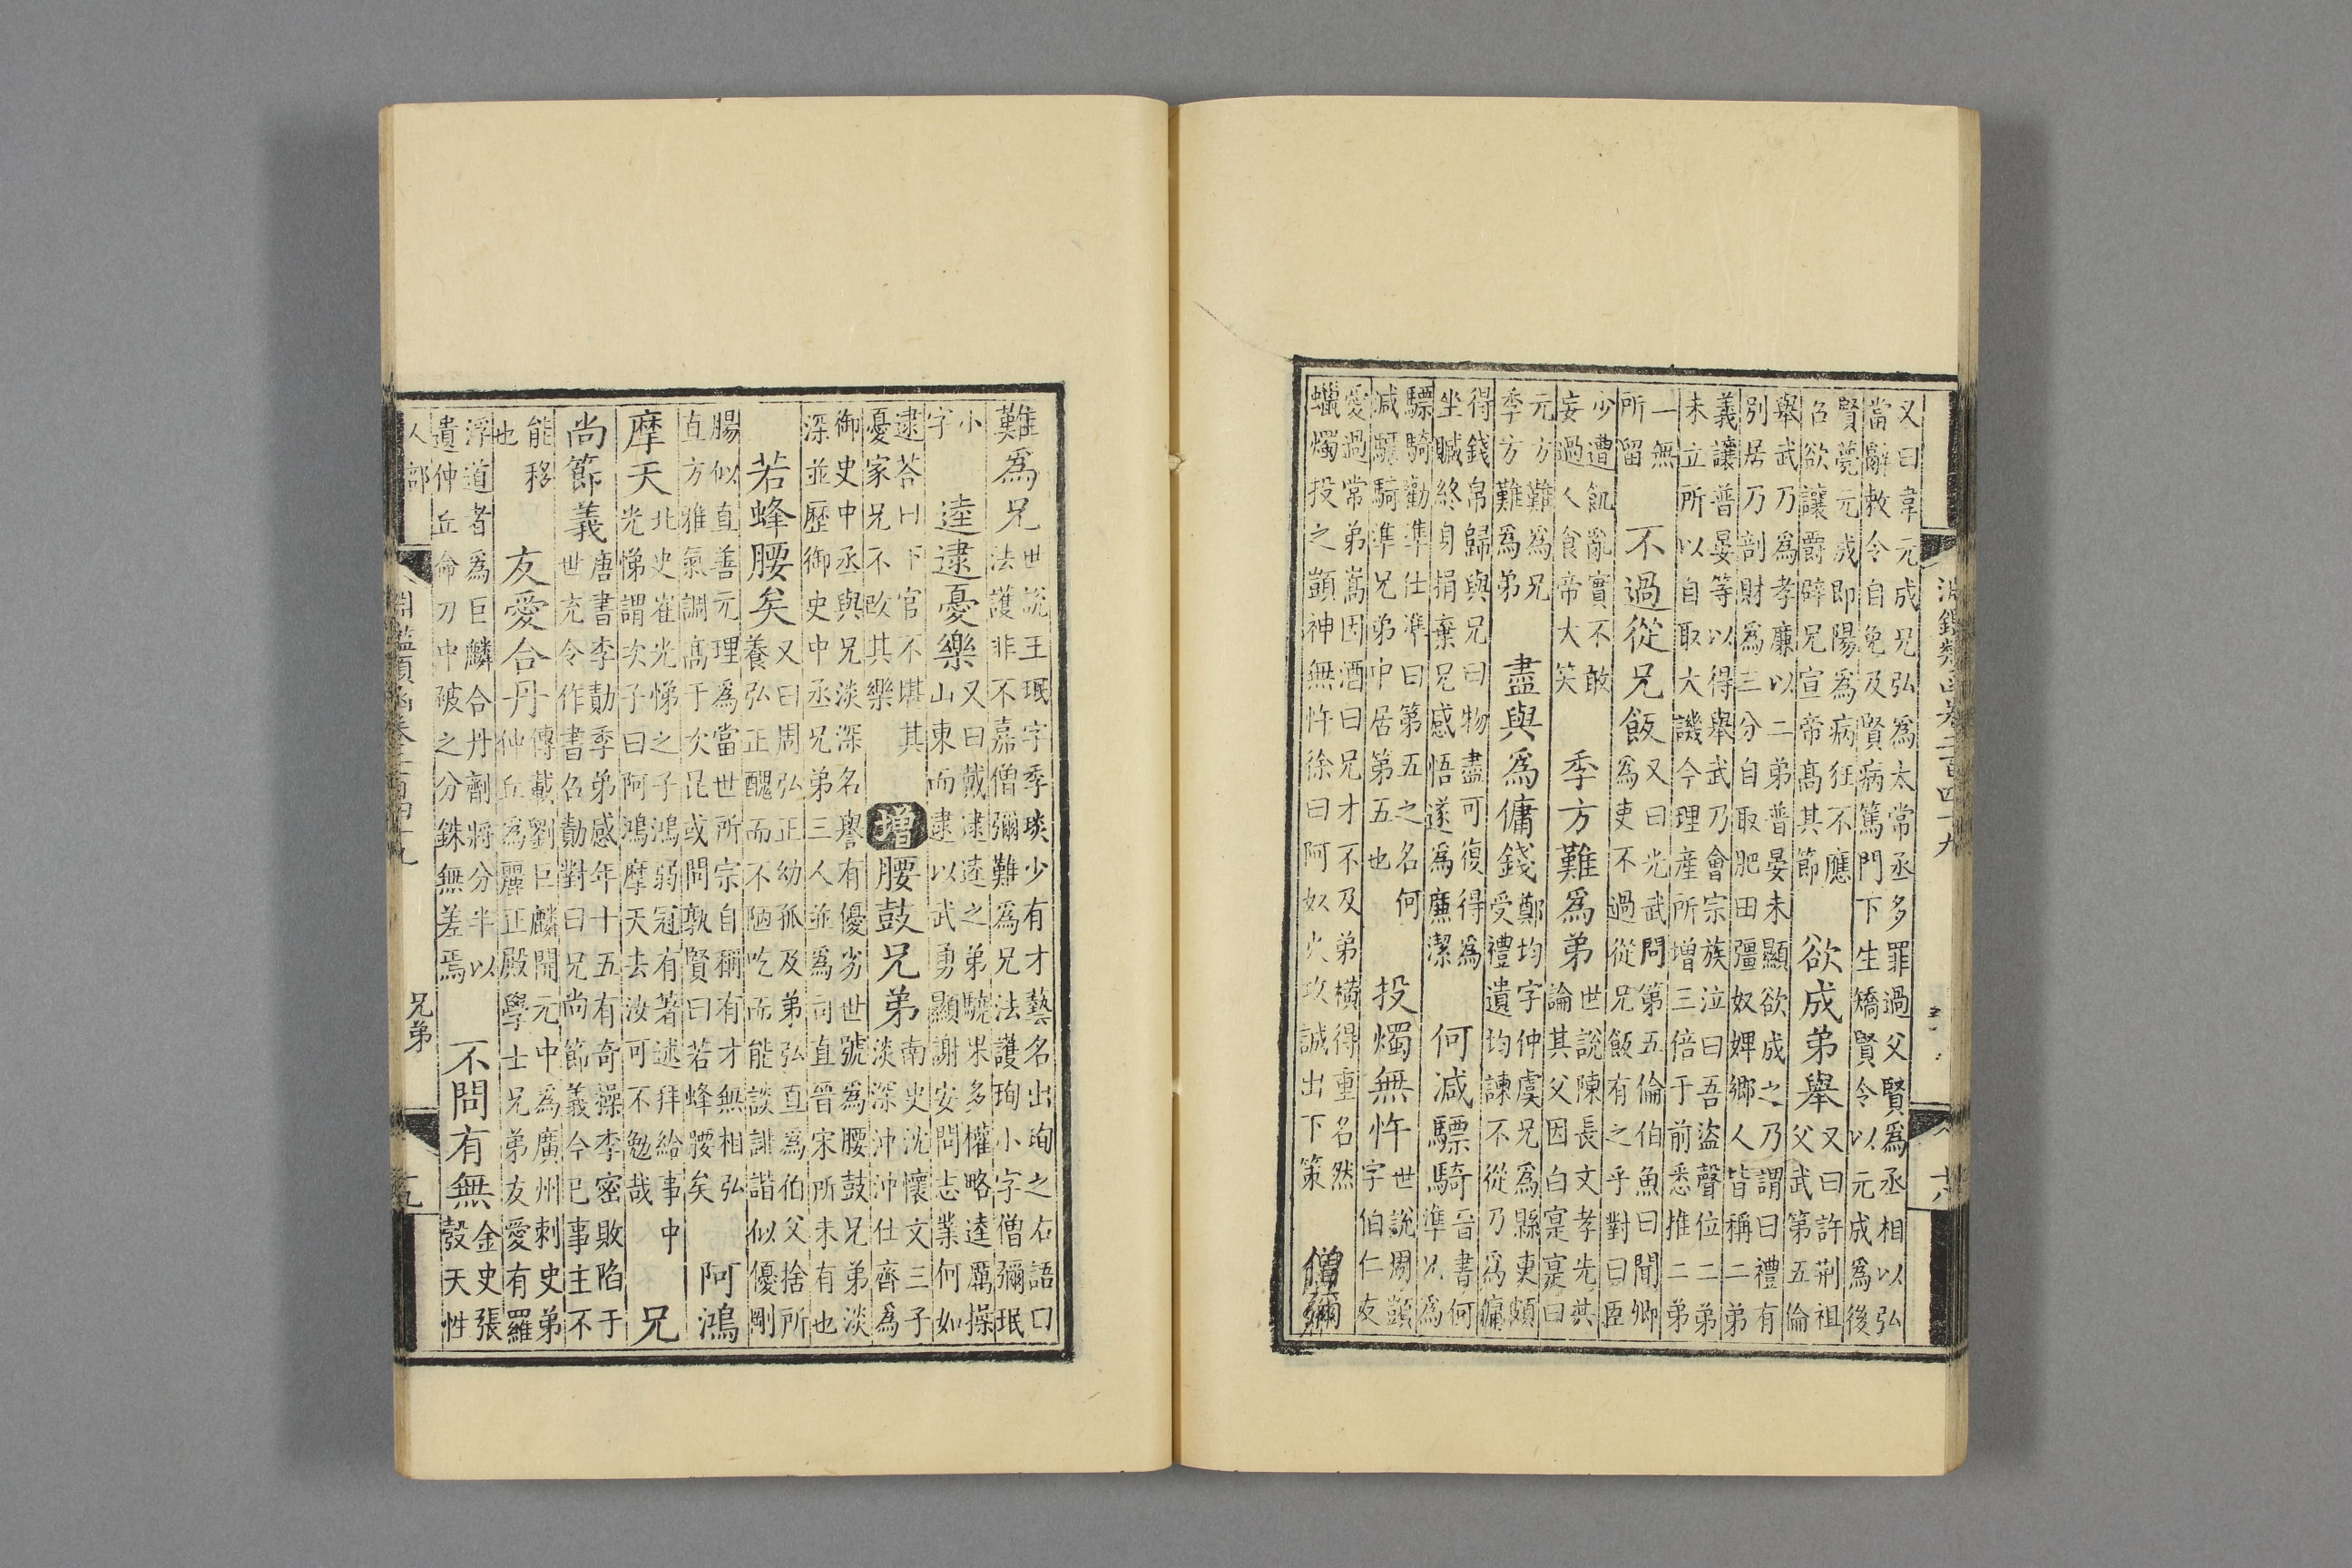 淵鑑類函卷二百四十九
十八
又曰韋元成兄弘為太常丞多罪過父賢為丞相以弘
當辭敕令自免及賢病篤門下生矯賢令以元成為後
賢薨元成即陽為病狂不應
召欲讓爵辟兄宣帝高其節
欲成弟舉
又曰許荆祖
父武第五倫
舉武乃為孝廉以二弟普晏未顯欲成之乃謂曰禮有
別居乃剖財為三分自取肥田彊奴婢鄉人皆稱二弟
義讓普晏等以得舉武乃會宗族泣曰吾盜聲位二弟
未立所以自取大譏今理産所增三倍于前悉推二弟
一無
所留
不過從兄飯
又曰光武問第五倫伯魚曰聞卿
為吏不過從兄飯有之乎對曰臣
少遭飢亂實不敢
妄過人食帝大笑
季方難為弟
世說陳長文孝先共
論其父因白寔寔曰
元方難為兄
季方難為弟
盡與為傭錢
鄭均字仲虞兄為縣吏頗
受禮遺均諫不從乃為傭
得錢帛歸與兄曰物盡可復得為
坐贓終身捐棄兄感悟遂為廉潔
何減驃騎
晉書何
準兄為
驃騎勸準仕準曰第五之名何
減驃騎準兄弟中居第五也
投燭無忤
世說周顗
字伯仁友
愛過常弟嵩因酒曰兄才不及弟橫得重名然
蠟燭投之顗神無忤徐曰阿奴火攻誠出下策
僧彌
難為兄
世說王珉字季琰少有才藝名出珣之右語曰
法護非不嘉僧彌難為兄法護珣小字僧彌珉
小
字
逵逯憂樂
又曰戴逯逵之弟驍果多權略逵厲操
山東而逯以武勇顯謝安問志業何如
逯荅曰下官不堪其
憂家兄不改其樂
增
腰鼓兄弟
南史沈懷文三子
淡深沖沖仕齊為
御史中丞與兄淡深名譽有優劣世號為腰鼓兄弟淡
深並歷御史中丞兄弟三人並為司直晉宋所未有也
若蜂腰矣
又曰周弘正幼孤及弟弘直為伯父捨所
養弘正醜而不陋吃而能談誹諧似優剛
腸似直善元理為當世所宗自稱有才無相弘
直方雅氣調高于次昆或問孰賢曰若蜂腰矣
阿鴻
摩天
北史崔光悌之子鴻弱冠有著述拜給事中
光悌謂次子曰阿鴻摩天去汝可不勉哉
兄
尚節義
唐書李勣季弟感年十五有奇操李密敗陷于
世充令作書召勣對曰兄尚節義今已事主不
能移
也
友愛合丹
傳載劉巨麟開元中為廣州刺史弟
仲丘為麗正殿學士兄弟友愛有羅
浮道者為巨麟合丹劑將分半以
遺仲丘侖刀中破之分銖無差焉
不問有無
金史張
彀天性
人部
淵鑑類函卷二百四十九
兄弟
十九